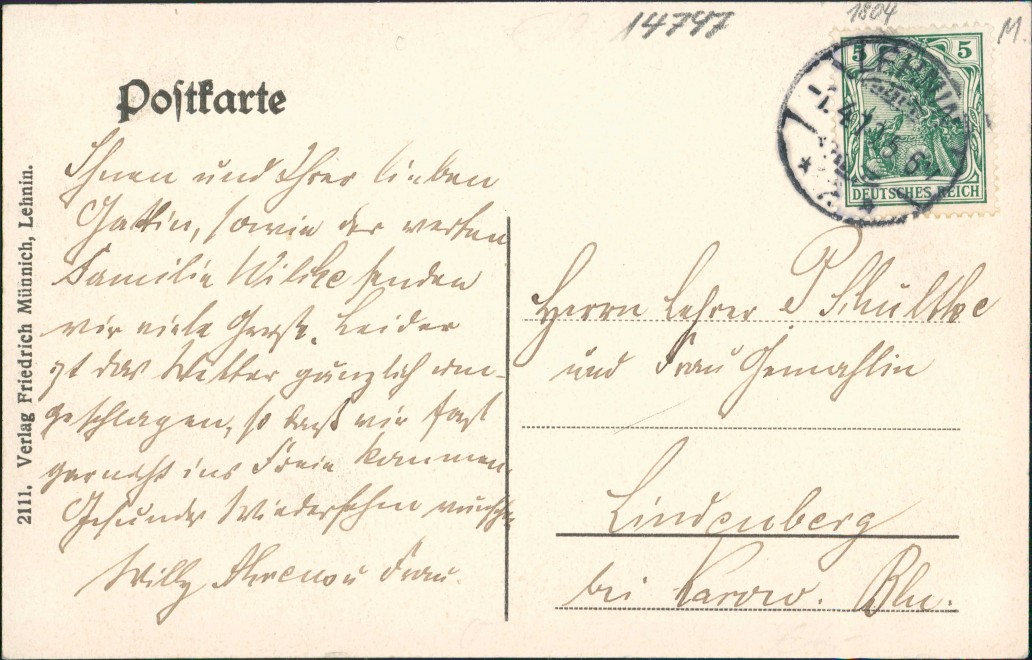 14747
1804
M.
Postkarte
5 5
LEHNIN
DEUTSCHES REICH
2111. Verlag Friedrich Münnich, Lehnin.
Ihnen und Ihrer lieben
Gattin, sowie der werten
Familie Wilcke senden
wir viele Grüße. Leider
ist das Wetter gänzlich um-
geschlagen, so daß wir fast
garnicht ins Freie kommen.
Gesundes Wiedersehen wünschen
Willy Ahrens u Frau.
Herrn Lehrer P Schultke
und Frau Gemahlin
Lindenberg
bei Karow. Bln.